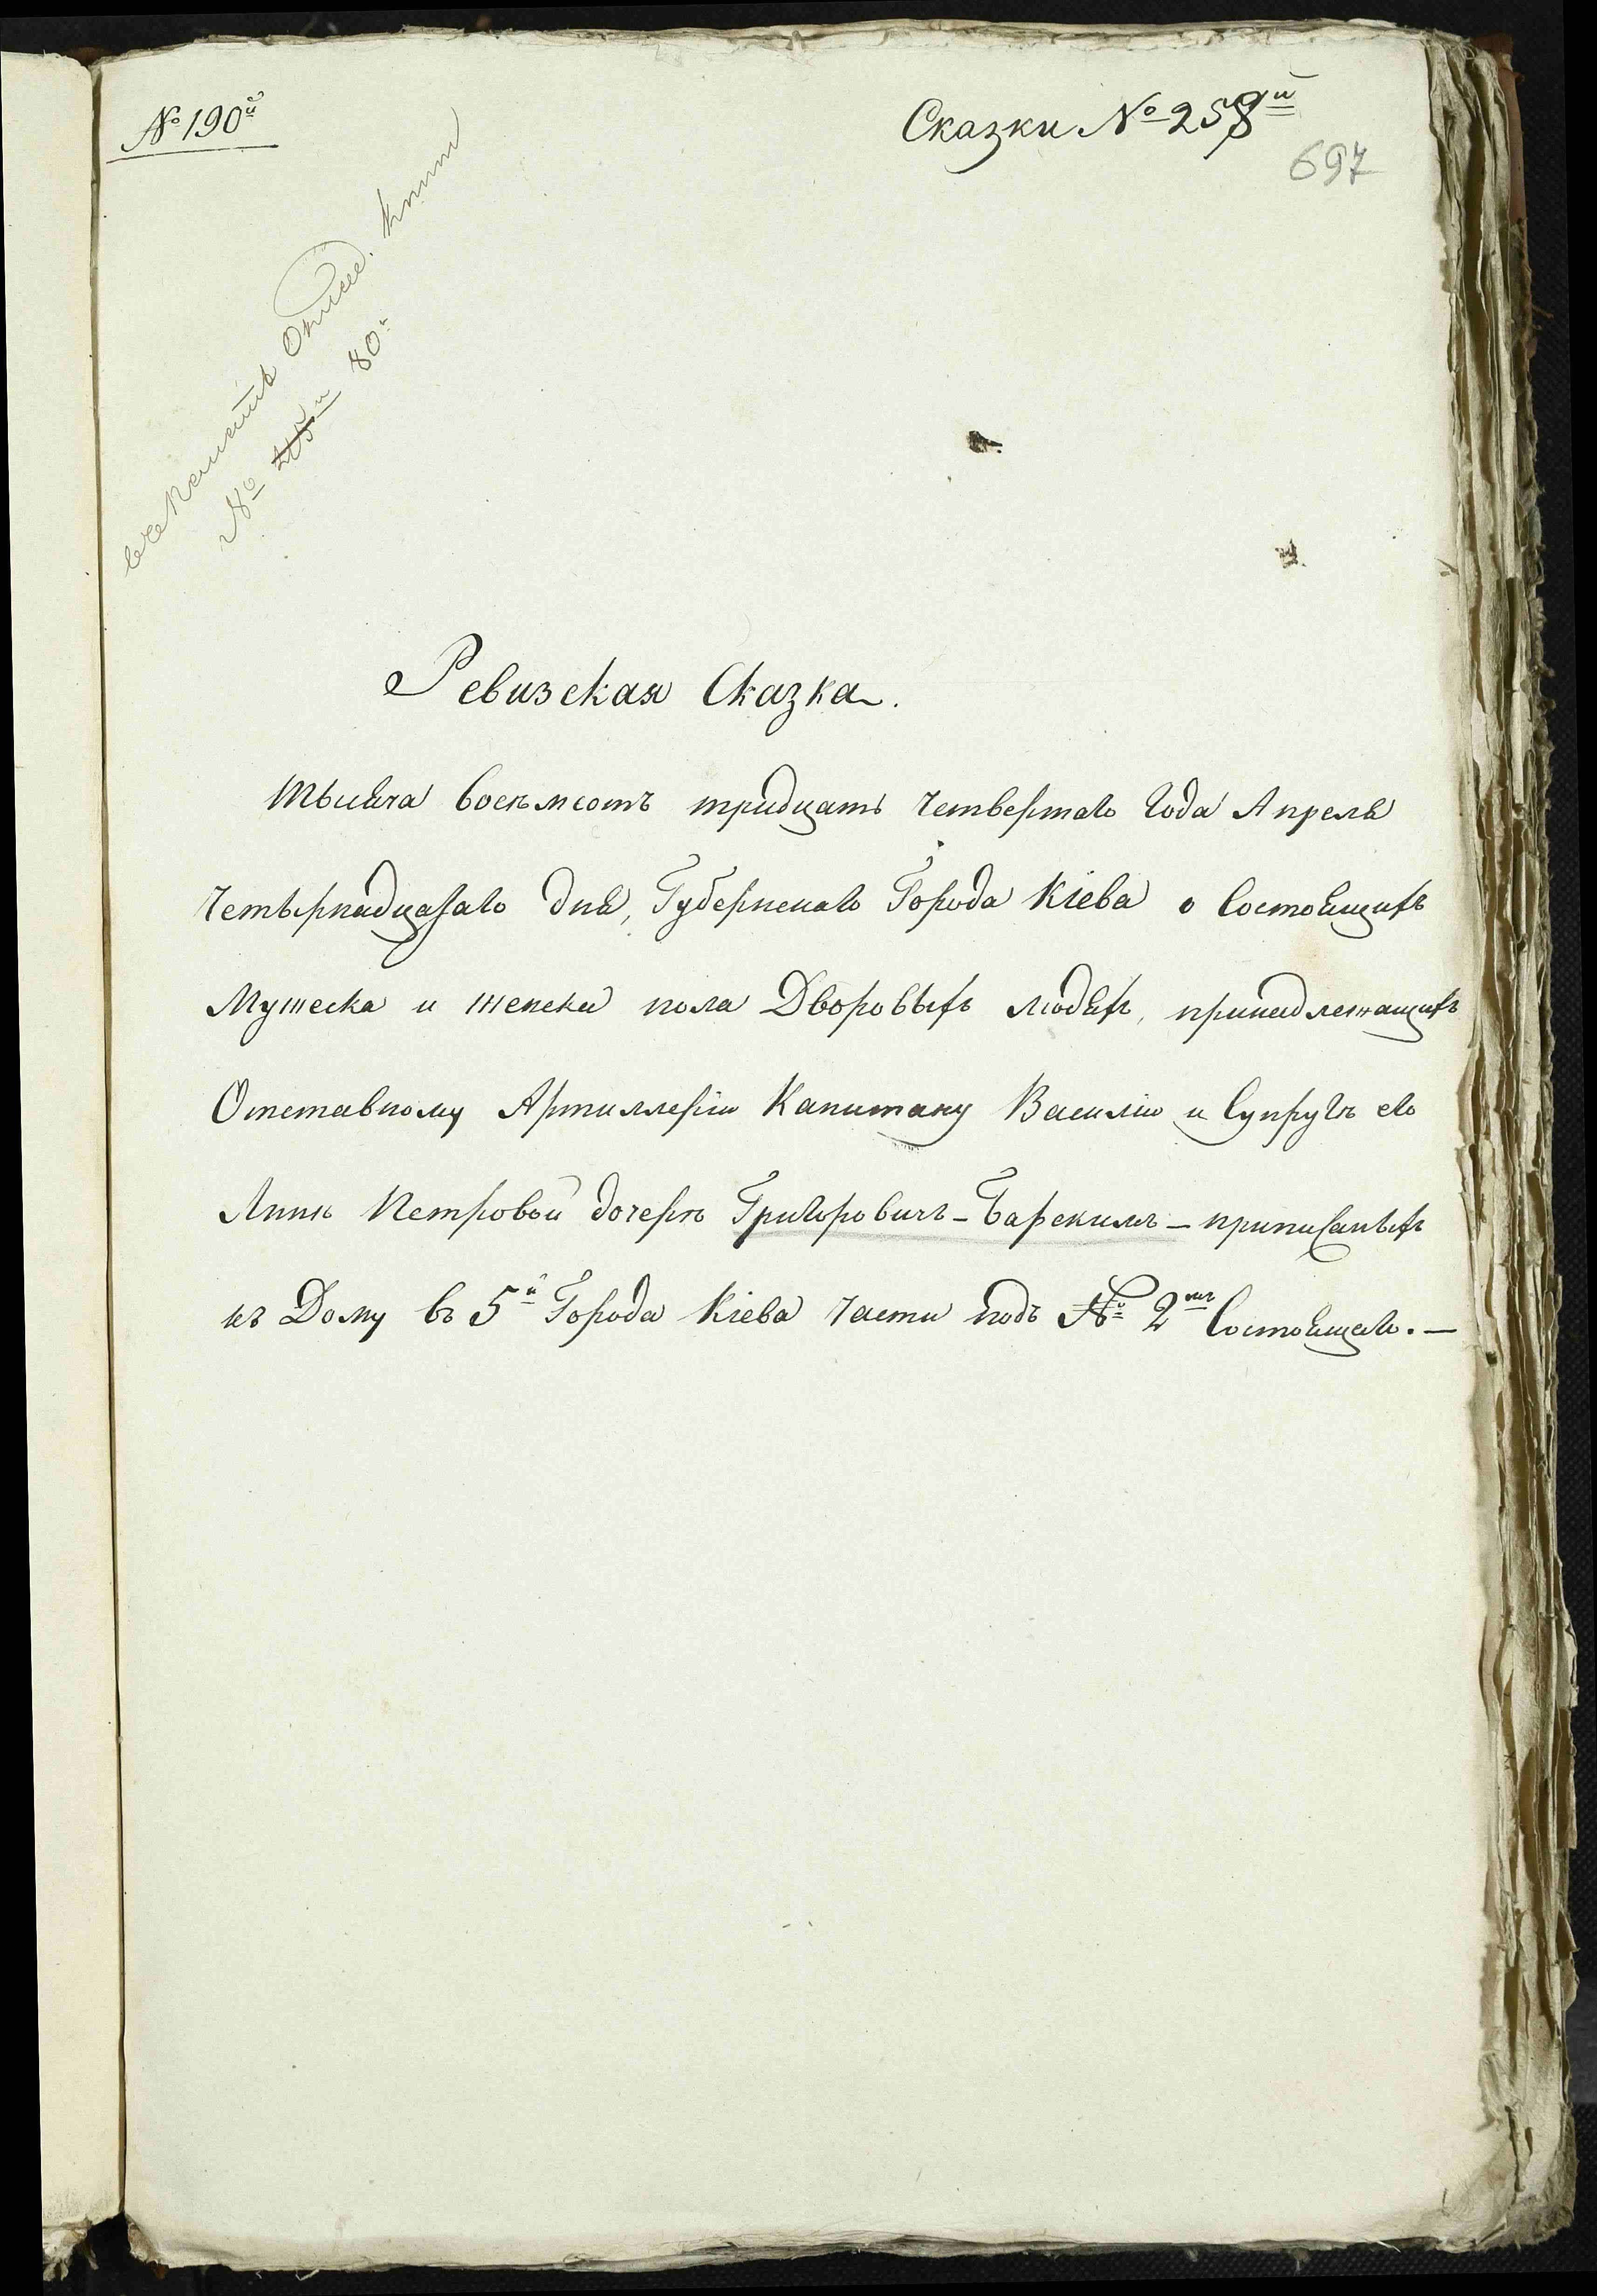 № 190й
Сказки № 258й
697
Опис. книги
№ 80й
Ревизская Сказка.
Тысяча восемсотъ тридцать четвертаго года Апреля
четырнадцатаго дня, Губернскаго Города Кіева о состоящихъ
мужеска и женска пола Дворовыхъ людяхъ, принадлежащихъ
Отставному Артиллеріи Капитану Василію и Супругѣ его
Аннѣ Петровой дочерѣ Григоровичъ-Барскимъ - приписаныхъ
къ Дому въ 5й Города Кіева части подъ № 2мъ состоящаго. —